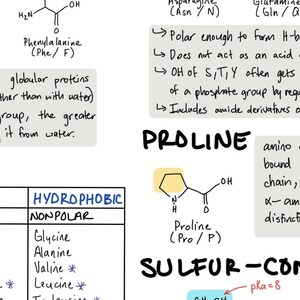 H₂N
OH
O
Phenylalanine
(Phe / F)
Asparagine
(Asn / N)
(Gln / Q
↳ Polar enough to form H-b
↳ Does not act as an acid
↳ OH of S,T,Y often gets
of a phosphate group by
↳ Includes amide derivatives
globular proteins
than with water)
group, the greater
it from water.
PROLINE
N
H
O
OH
Proline
(Pro / P)
amino
bound
chain,
α-am
distinct
HYDROPHOBIC
NONPOLAR
Glycine
Alanine
Valine *
Leucine *
SULFUR-CON
pKa=8